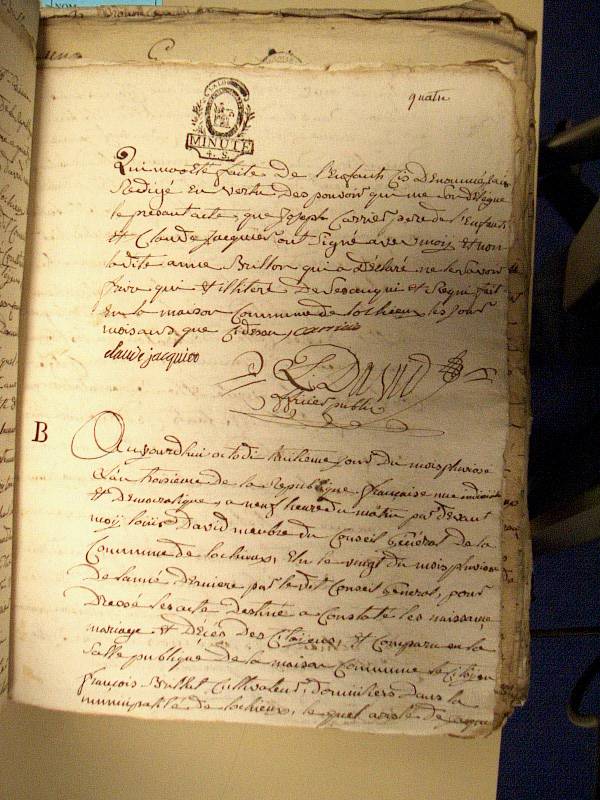 quatre
MINUTE
4. S.
qui m'ont Eté faite de l'Enfant cy denommé, j'ai
Redigé En vertu des pouvoir qui me son délégué
le présant acte, que joseph Carrier pere de l'Enfant
Et Claude jacquier ont signé avec moy Et non
ladite anne Brillon qui a déclaré ne le savoir
faire qui
En la maison Commune de lochieux les jour
mois an que Cidessu carrier
claude jacquier
L. David
officier public
B
Aujourd'hui octodi huitieme jour du mois pluviose
L'an troisieme de la Republique française une indivisible
Et Démocratique, a neuf heure du matin par devant
moy louis David membre du Conseil Général de la
Commune de lochieux, Elu le vingt du mois pluviose
De lannée derniere par le dit Conseil Général, pour
Dressé les acte destiné a Constaté les naissance
mariage Et Décès des Citoÿens, Et Comparu en la
salle publique de la maison Commune le Citoÿen
françois Cultivateur, domiciliers dans la
municipalité de lochieux, le quel assisté de